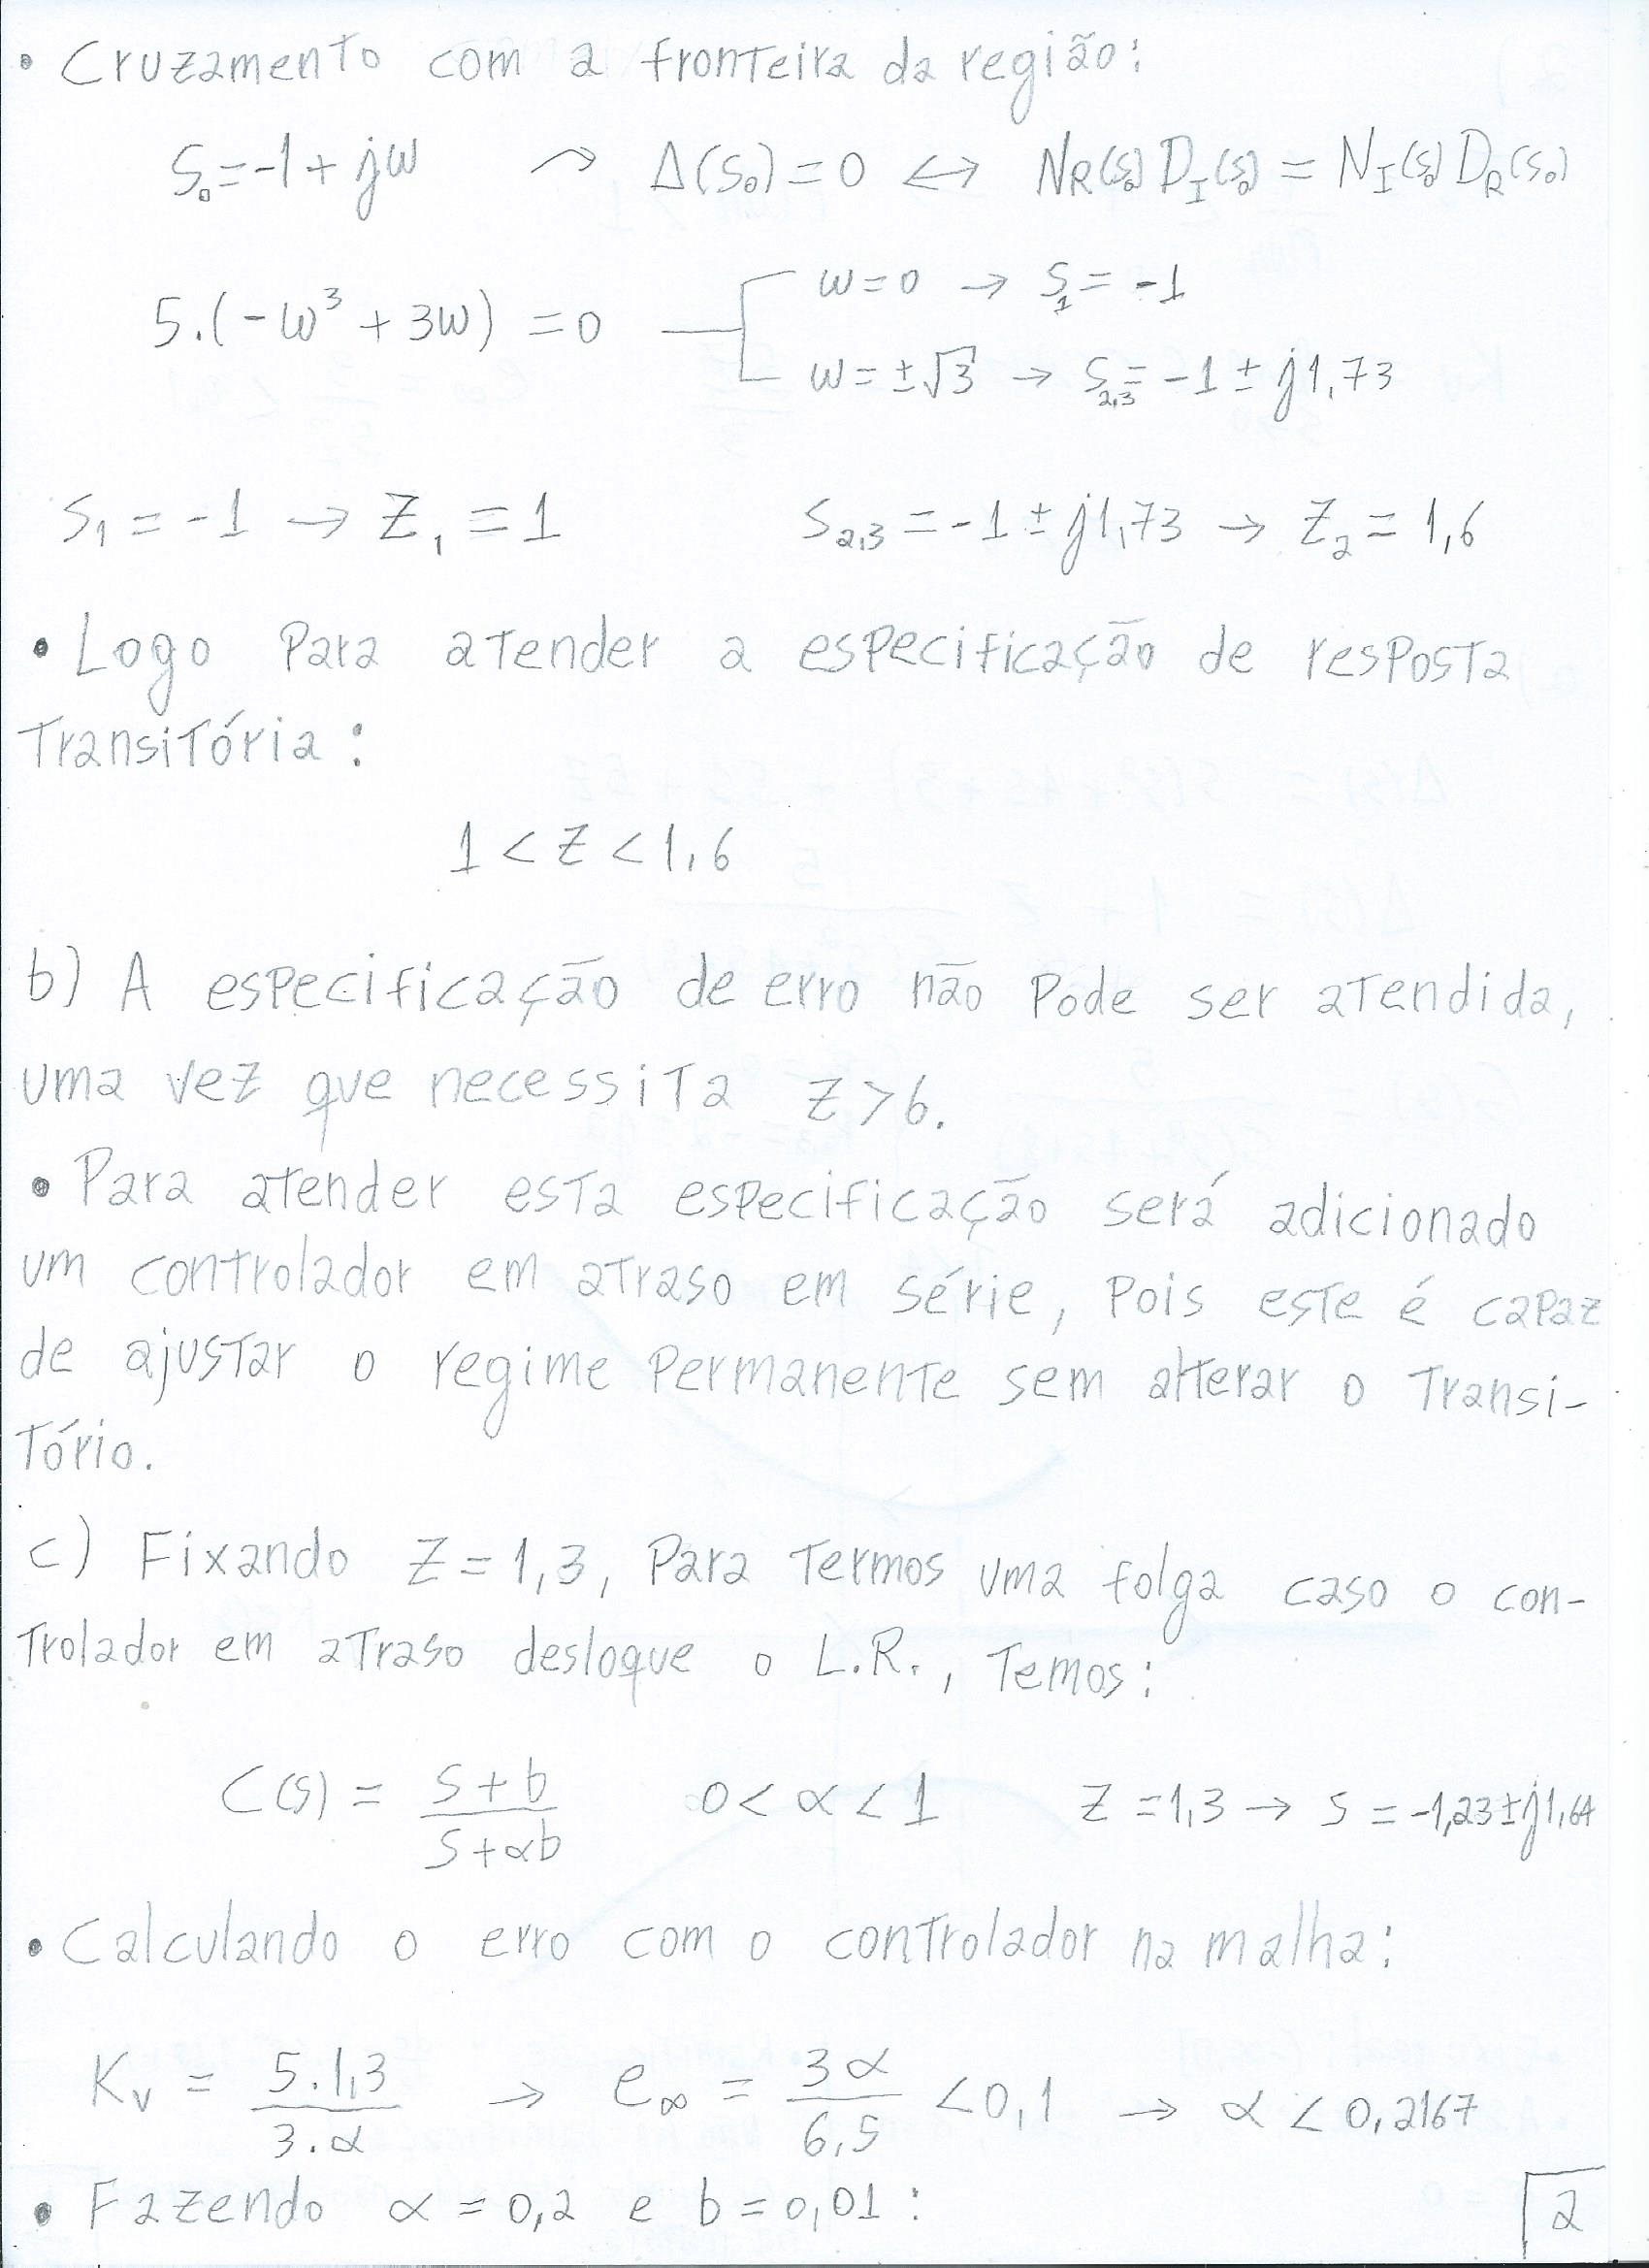 • Cruzamento com a fronteira da região:
S₀ = -1 + jω ⤳ Δ(S₀) = 0 ↔ N_R(S₀) D_I(S₀) = N_I(S₀) D_R(S₀)
ω = 0 → S₁ = -1
5.(-ω³ + 3ω) = 0
ω = ±√3 → S₂,₃ = -1 ± j1,73
S₁ = -1 → Z₁ = 1 S₂,₃ = -1 ± j1,73 → Z₂ = 1,6
• Logo Para atender a especificação de resposta
Transitória:
1 < Z < 1,6
b) A especificação de erro não Pode ser atendida,
uma vez que necessita Z > 6.
• Para atender esta especificação será adicionado
um controlador em atraso em série, Pois este é capaz
de ajustar o regime Permanente sem alterar o Transi-
tório.
c) Fixando Z = 1,3, Para Termos uma folga caso o con-
trolador em atraso desloque o L.R., Temos:
C(s) = (s + b)/(s + αb) 0 < α < 1 Z = 1,3 → S = -1,23 ± j1,64
• Calculando o erro com o controlador na malha:
K_v = (5.1,3)/(3.α) → e_∞ = (3α)/(6,5) < 0,1 → α < 0,2167
• Fazendo α = 0,2 e b = 0,01:
2